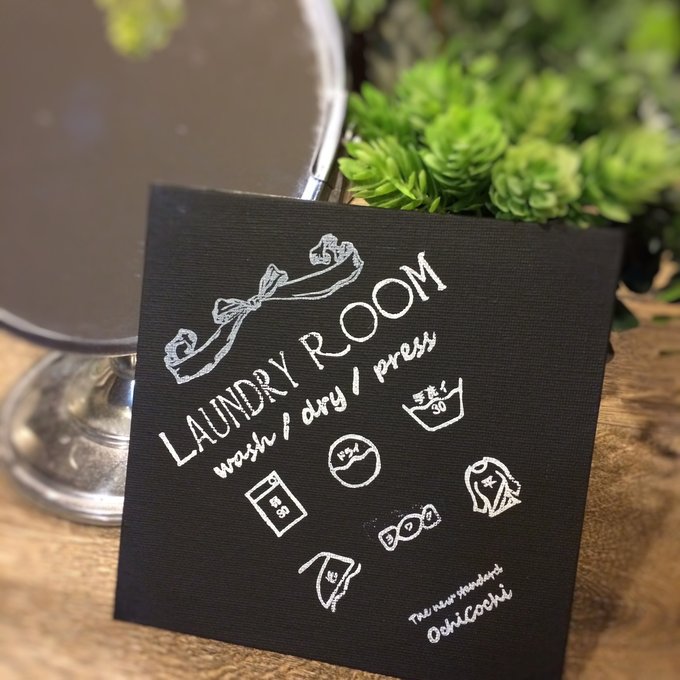 LAUNDRY ROOM
wash / dry / press
手洗イ
30
ドライ
弱
30
ヨワク
平
The new standard
OchiCochi